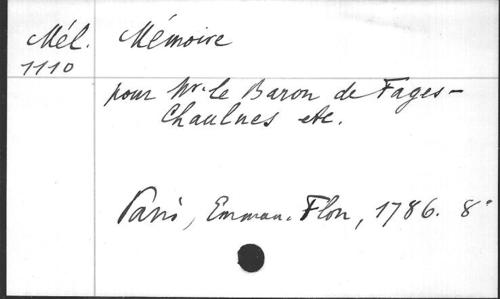 Mél. Mémoire
1110
pour Mr. le Baron de Fages-
Chaulnes etc.
Paris, Emman. Flon, 1786. 8°